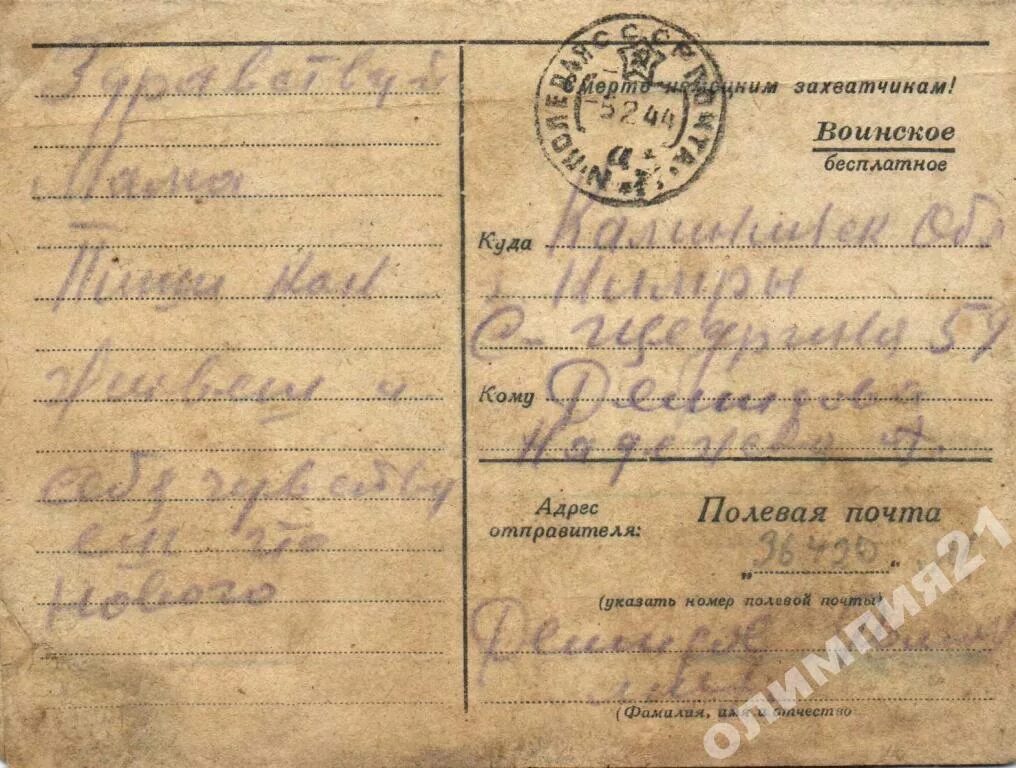 Здравствуй
Мама
Пиши как
Живеш и
себя чувству
еш что
нового
ПОЛЕВАЯ ПОЧТА СССР
5 2 44
а
Смерть немецким захватчикам!
Воинское
бесплатное
Куда Калининск Обл
Кимры
С-Щедрина 59
Кому Демидова
Надежда А.
Адрес
отправителя:
Полевая почта
„36430“
(указать номер полевой почты)
Демидов
(Фамилия, имя и отчество
олимпия21